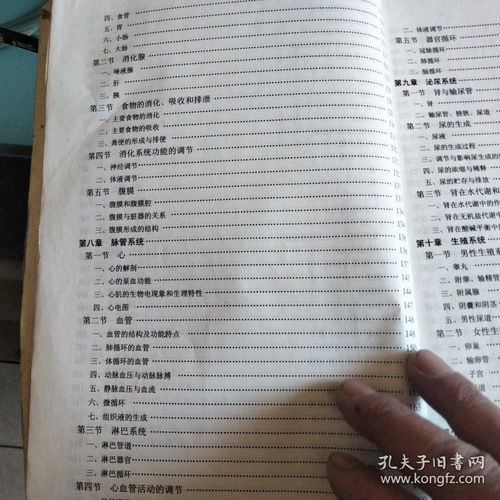 四、食管
五、胃
六、小肠
七、大肠
第二节 消化腺
一、唾液腺
二、肝
三、胰
第三节 食物的消化、吸收和排泄
一、主要食物的消化
二、主要食物的吸收
三、粪便的形成与排便
第四节 消化系统功能的调节
一、神经调节
二、体液调节
第五节 腹膜
一、腹膜和腹膜腔
二、腹膜与脏器的关系
三、腹膜形成的结构
第八章 脉管系统
第一节 心
一、心的解剖
二、心的泵血功能
三、心肌的生物电现象和生理特性
四、心电图
第二节 血管
一、血管的结构及功能特点
二、肺循环的血管
三、体循环的血管
四、动脉血压与动脉脉搏
五、静脉血压与血流
六、微循环
七、组织液的生成
第三节 淋巴系统
一、淋巴管道
二、淋巴器官
三、淋巴循环
第四节 心血管活动的调节
二、体液调节
第五节 器官循环
一、冠脉循环
二、肺循环
三、脑循环
第九章 泌尿系统
第一节 肾与输尿管
一、肾
二、输尿管、膀胱、尿道
第二节 尿的生成
一、尿液
二、尿的生成过程
三、调节与影响尿生成的
四、尿的浓缩与稀释
五、尿的贮存与排放
第三节 肾在水代谢和
一、肾在水代谢中的作
二、肾在无机盐代谢
三、肾在酸碱平衡中的
第十章 生殖系统
第一节 男性生殖系
一、睾丸
二、附睾、输精管
三、附属腺
四、阴囊和阴茎
五、男性尿道
第二节 女性生
一、卵巢
二、输卵管
三、子宫
孔夫子旧书网
www.kongfz.com